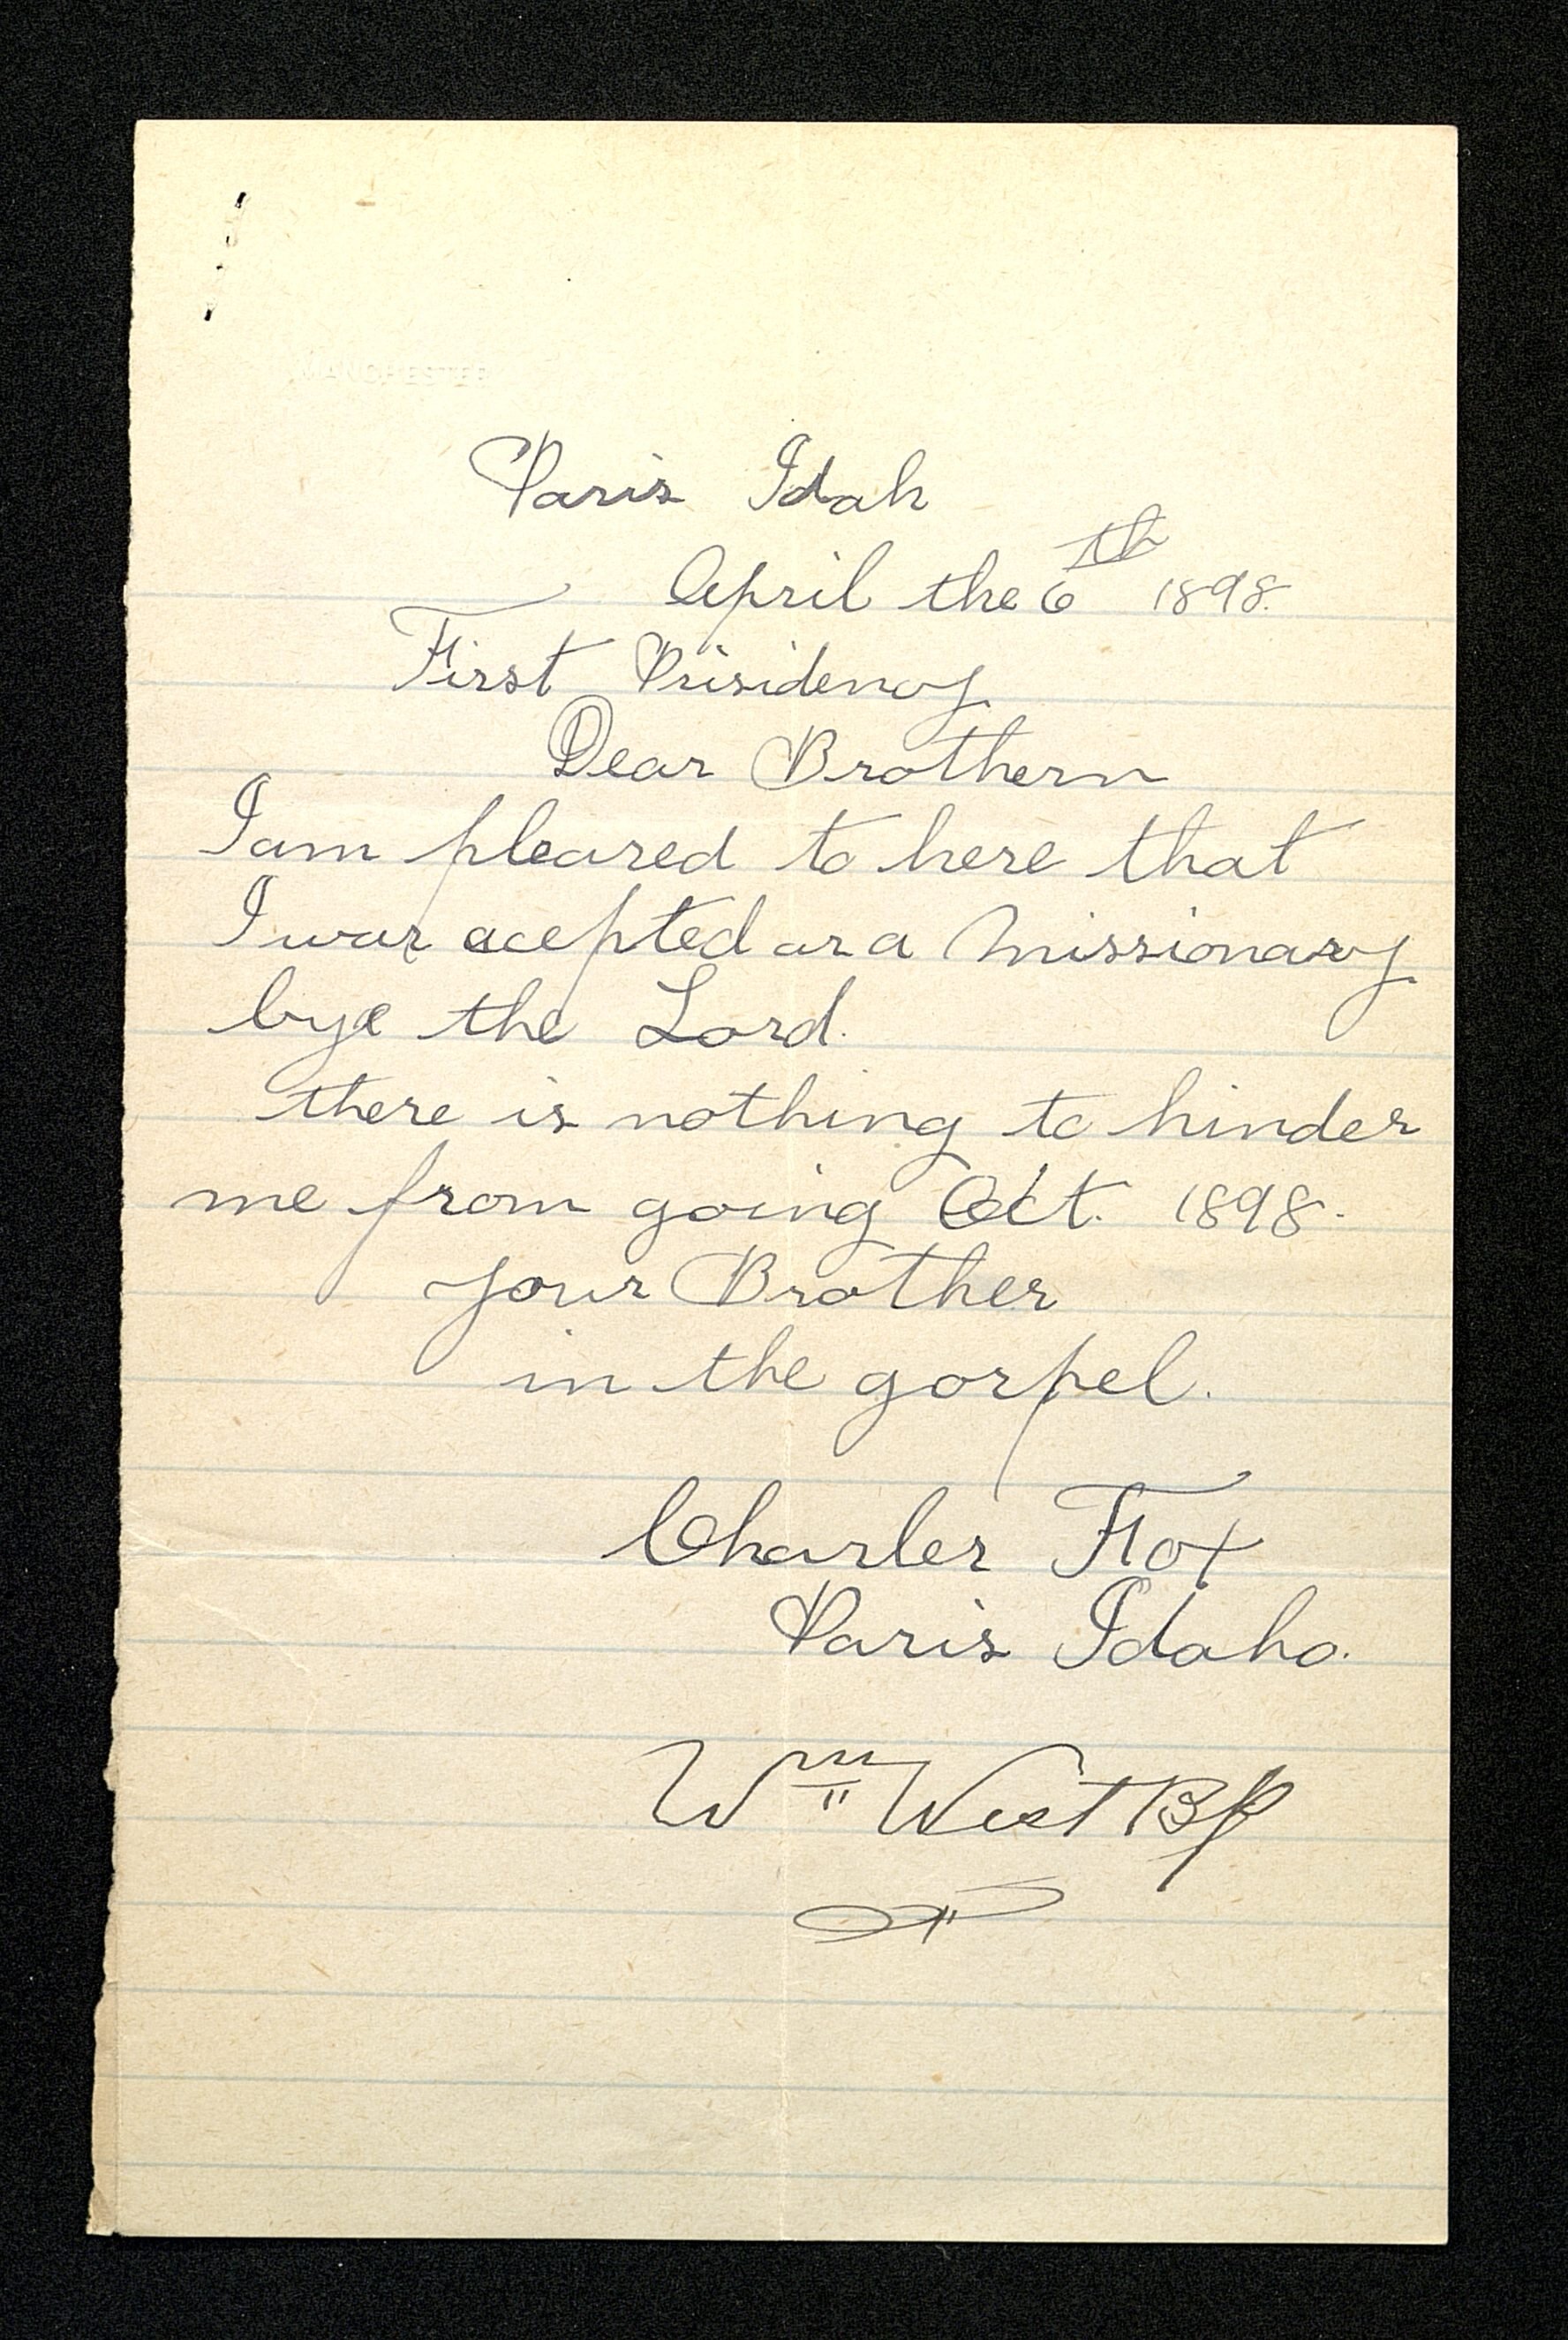 MANCHESTER
Paris Idah
April the 6th 1898.
First Prisidency
Dear Brothern
I am pleased to here that
I was acepted as a Missionary
bye the Lord.
there is nothing to hinder
me from going Oct. 1898.
your Brother
in the gospel.
Charles Fox
Paris Idaho.
Wm West Bp